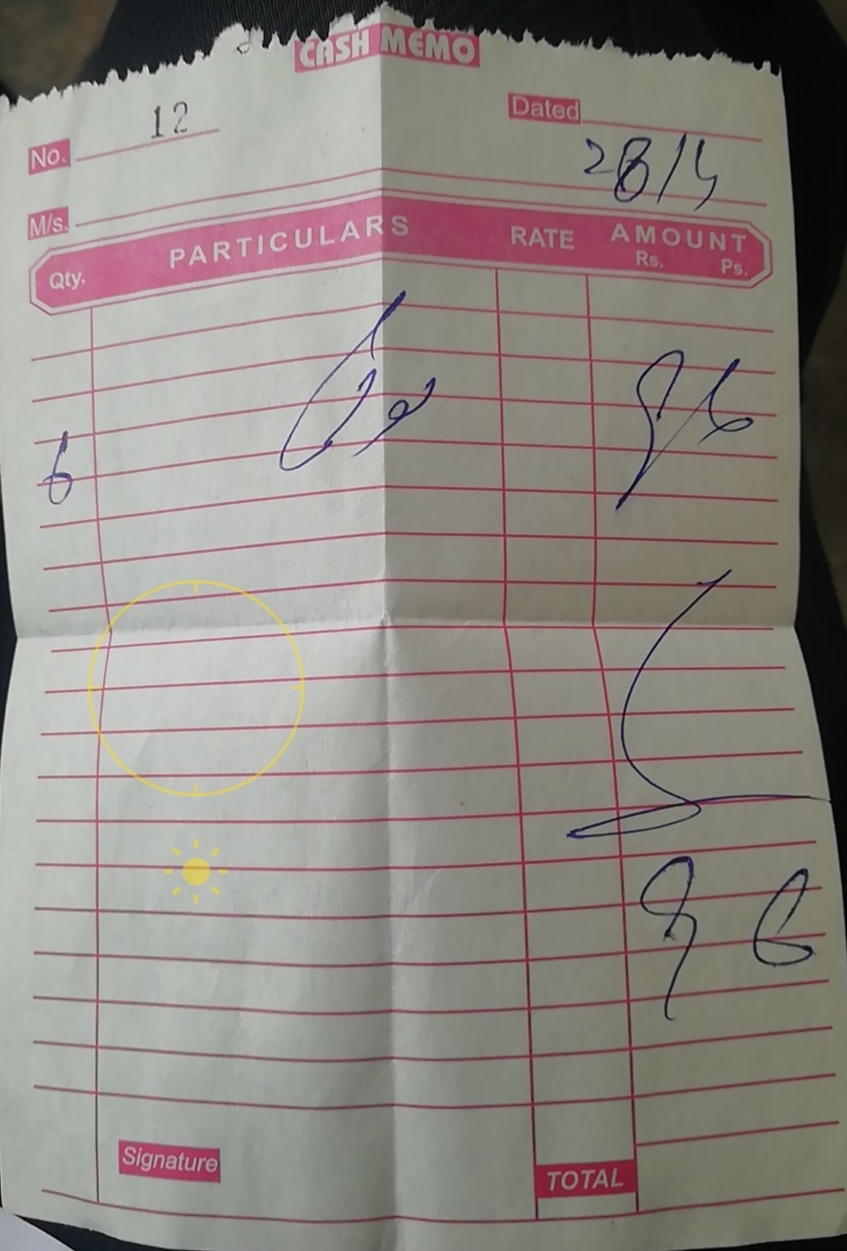 CASH MEMO
No. 12 Dated 28/4
M/s.
Qty. PARTICULARS RATE AMOUNT
Rs. Ps.
6 96
96
Signature TOTAL